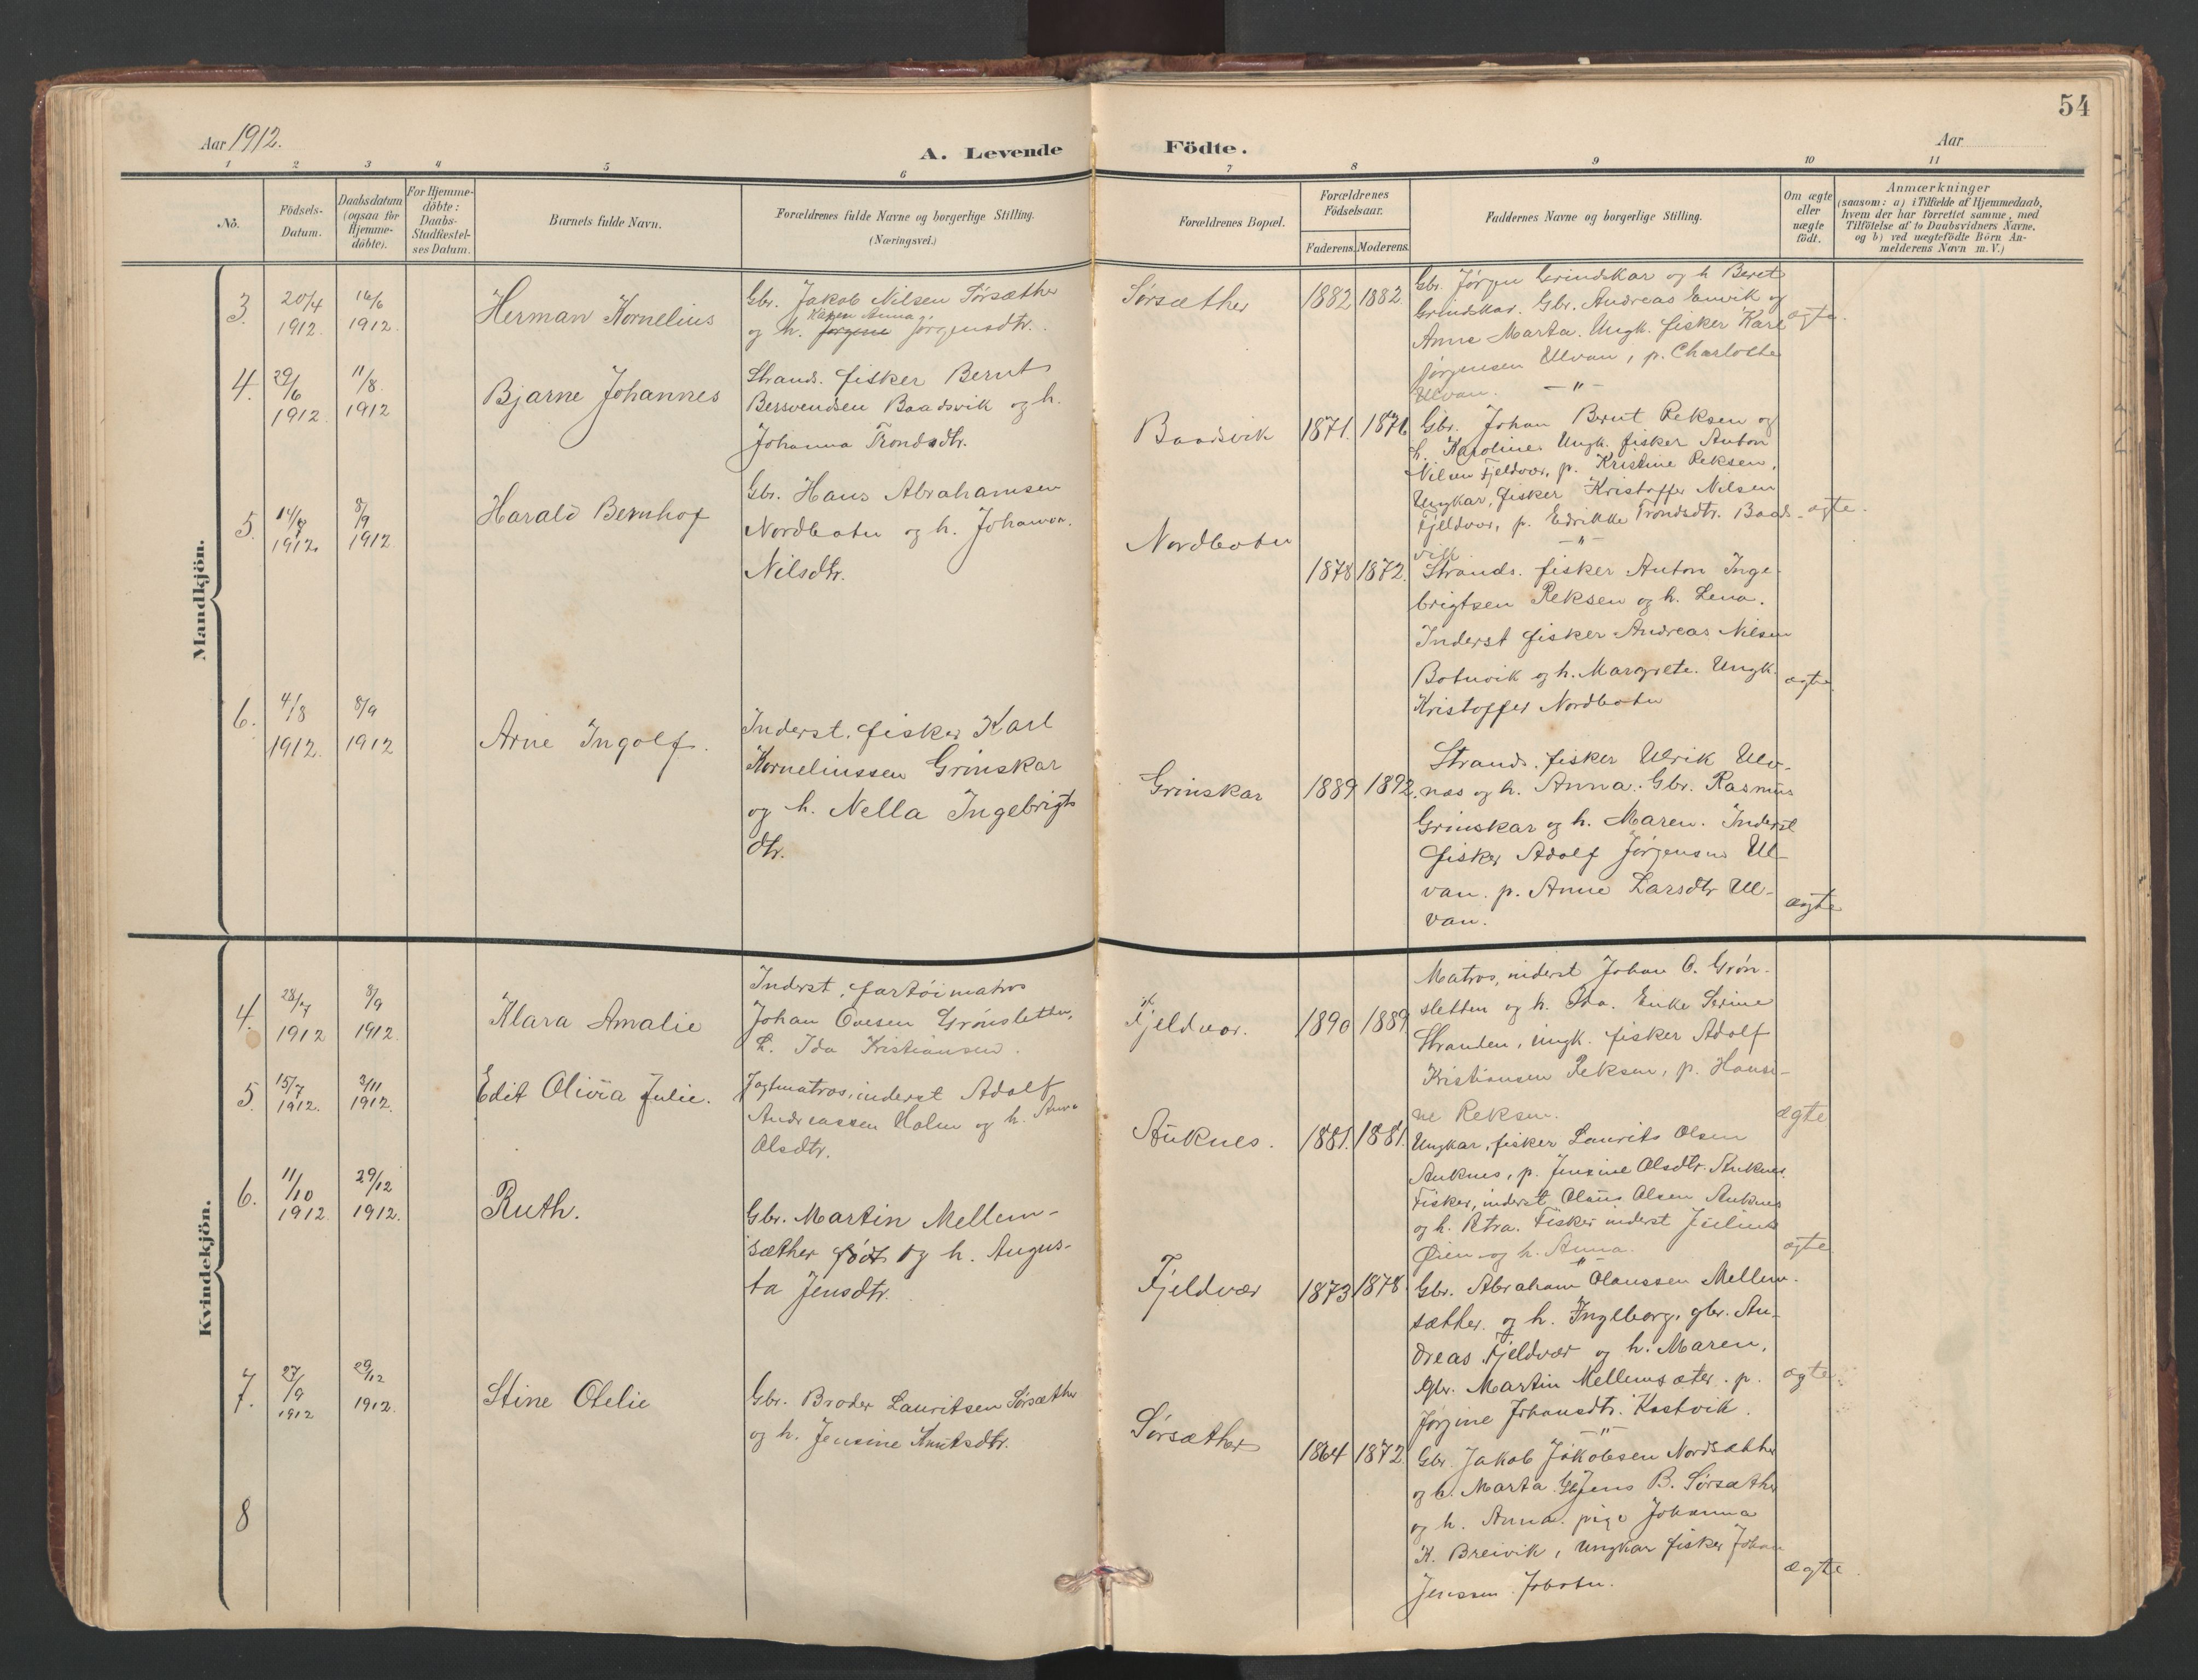 54
Aar 1912.
A. Levende Födte.
Aar
1 2 3 4 5 6 7 8 9 10 11
No.
Födsels-
Datum.
Daabsdatum
(ogsaa for
Hjemme-
döbte).
For Hjemme-
döbte:
Daabs-
Stadfæstel-
ses Datum.
Barnets fulde Navn.
Forældrenes fulde Navne og borgerlige Stilling.
(Næringsvei.)
Forældrenes Bopæl.
Forældrenes
Födselsaar.
Faderens. Moderens.
Faddernes Navne og borgerlige Stilling.
Om ægte
eller
uægte
födt.
Anmærkninger
(saasom: a) i Tilfælde af Hjemmedaab,
hvem der har forrettet samme, med
Tilföielse af to Daabsvidners Navne,
og b) ved uægtefödte Börn An-
melderens Navn m. V.)
Mandkjön.
3.
20/4
1912.
16/6
1912.
Herman Kornelius
Gbr. Jakob Nilsen Sørsæther
Karen Anna
og h. Jørgine Jørgensdtr.
Sørsæther
1882 1882.
Gbr. Jørgen Grindskar og h Beret
Grindskar. Gbr. Andreas Emvik og
Anne Marta. Ungk. fisker Karl
Jørgensen Ulvan, p. Charlotte
Ulvan. — " —
ægte.
4.
29/6
1912
11/8
1912
Bjarne Johannes
Strands. fisker Bernt
Bersvendsen Baadsvik og h.
Johanna Trondsdtr.
Baadsvik
1871. 1876
Gbr. Johan Bernt Reksen og
h. Karoline. Ungk. fisker Anton
Nilsen Fjeldvær, p. Kristine Reksen,
Ungkar, fisker Kristoffer Nilsen
Fjeldvær, p. Edrikke Trondsdtr. Baads-
vik. — " —
ægte.
5.
14/7
1912.
8/9
1912
Harald Bernhof
Gbr. Hans Abrahamsen
Nordbotn og h. Johanna
Nilsdtr.
Nordbotn
1878 1872.
Strands. fisker Anton Inge-
brigtsen Reksen og h. Lena.
Inderst fisker Andreas Nilsen
Botnvik og h. Margrete. Ungk.
Kristoffer Nordbotn
ægte
6.
4/8
1912.
8/9
1912
Arne Ingolf.
Inderst. fisker Karl
Korneliussen Grinskar
og h. Nella Ingebrigts
dtr.
Grinskar
1889 1892.
Strands. fisker Ulrik Ulv-
nas og h. Anna. Gbr. Rasmus
Grinskar og h. Maren. Inderst
fisker Adolf Jørgensen Ul-
van. p. Anne Larsdtr Ul-
van.
ægte
Kvindekjön.
4.
28/7
1912
8/9
1912.
Klara Amalie
Inderst, fartøimatros
Johan Ovesen Grønsletten,
h. Ida Kristiansen.
Fjeldvær.
1890 1889
Matros, inderst Johan O. Grøn-
sletten og h. Ida. Enke Serine
Stranden, ungk. fisker Adolf
Kristiansen Reksen, p. Hansi-
ne Reksen.
ægte
5.
15/7
1912.
3/11
1912.
Edit Olivia Julie.
Jagtmatros, inderst Adolf
Andreassen Holm og h. Anna
Olsdtr.
Auknes.
1881. 1881.
Ungkar, fisker Laurits Olsen
Auknes, p. Jensine Olsdtr. Auknes.
Fisker, inderst Olaus Olsen Auknes
og h. Petra. Fisker inderst Julius
Øien og h. Anna.
"
ægte
6.
11/10
1912.
29/12
1912.
Ruth.
Gbr. Martin Mellem-
sæther født og h. Augus-
ta Jensdtr.
Fjeldvær
1873 1878.
Gbr. Abraham Olaussen Mellem-
sæther og h. Ingleborg, gbr. An-
dreas Fjeldvær og h. Maren,
Gbr. Martin Mellemsæter. p.
Jørgine Johansdtr. Kastvik.
— " —
ægte.
7.
27/9
1912
29/12
1912.
Stine Otelie
Gbr. Broder Lauritsen Sørsæther
og h. Jensine Knutsdtr.
Sørsæther
1864 1872.
Gbr. Jakob Jakobsen Nordsæther
og h. Marta. Gbr Jens B. Sørsæther
og h. Anna. pige Johanna
K. Breivik, Ungkar fisker Johan
Jenssen
ægte.
8